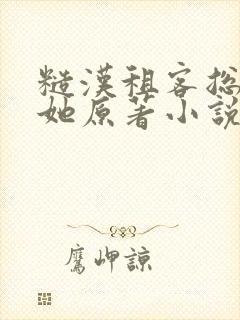 糙漢租客總
她原著小說
鷹岬諒